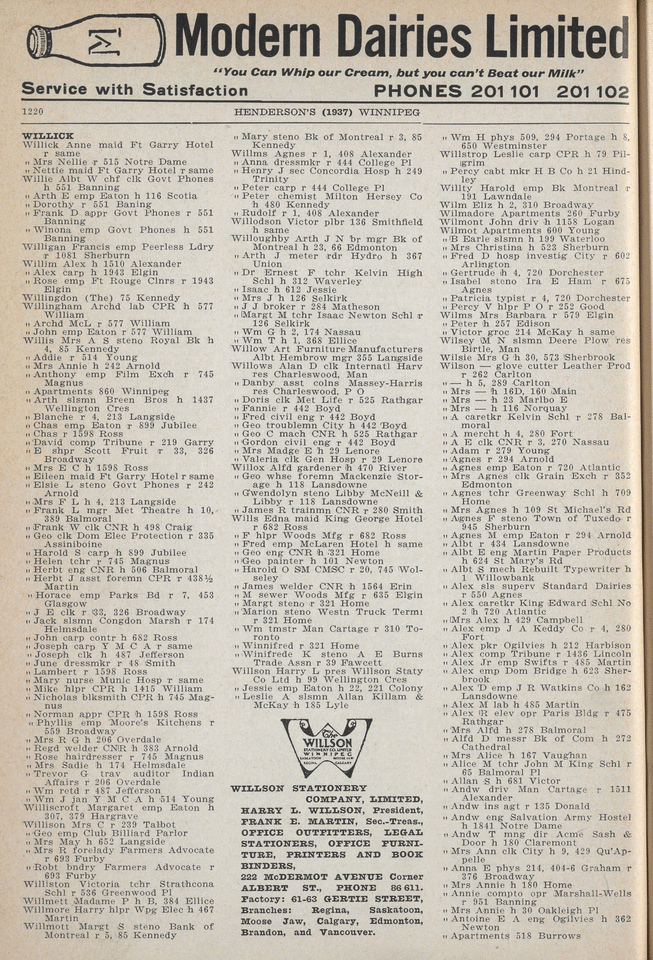 Modern Dairies Limited
"You Can Whip our Cream, but you can't Beat our Milk"
Service with Satisfaction PHONES 201 101 201 102
1220 HENDERSON'S (1937) WINNIPEG
WILLICK
Willick Anne maid Ft Garry Hotel
r same
" Mrs Nellie r 515 Notre Dame
" Nettie maid Ft Garry Hotel r same
Willie Albt W chf clk Govt Phones
h 551 Banning
" Arth E emp Eaton h 116 Scotia
" Dorothy r 551 Banning
" Frank D appr Govt Phones r 551
Banning
" Winona emp Govt Phones h 551
Banning
Willigan Francis emp Peerless Ldry
r 1081 Sherburn
Willim Alex h 1510 Alexander
" Alex carp h 1943 Elgin
" Rose emp Ft Rouge Clnrs r 1943
Elgin
Willingdon (The) 75 Kennedy
Willingham Archd lab CPR h 577
William
" Archd McL r 577 William
" John emp Eaton r 577 William
Willis Mrs A S steno Royal Bk h
4, 85 Kennedy
" Addie r 514 Young
" Mrs Annie h 242 Arnold
" Anthony emp Film Exch r 745
Magnus
" Apartments 860 Winnipeg
" Arth slsmn Breen Bros h 1437
Wellington Cres
" Blanche r 4, 213 Langside
" Chas emp Eaton r 899 Jubilee
" Chas r 1598 Ross
" David comp Tribune r 219 Garry
" E shpr Scott Fruit r 33, 326
Broadway
" Mrs E C h 1598 Ross
" Eileen maid Ft Garry Hotel r same
" Elsie L steno Govt Phones r 242
Arnold
" Mrs F L h 4, 213 Langside
" Frank L mgr Met Theatre h 10,
389 Balmoral
" Frank W clk CNR h 498 Craig
" Geo clk Dom Elec Protection r 335
Assiniboine
" Harold S carp h 899 Jubilee
" Helen tchr r 745 Magnus
" Herbt eng CNR h 506 Balmoral
" Herbt J asst foremn CPR r 438½
Martin
" Horace emp Parks Bd r 7, 453
Glasgow
" J E clk r 33, 326 Broadway
" Jack slsmn Congdon Marsh r 174
Helmsdale
" John carp contr h 682 Ross
" Joseph carp Y M C A r same
" Joseph clk h 487 Jefferson
" June dressmkr r 48 Smith
" Lambert r 1598 Ross
" Mary nurse Munic Hosp r same
" Mike hlpr CPR h 1415 William
" Nicholas blksmith CPR h 745 Mag-
nus
" Norman appr CPR h 1598 Ross
" Phyllis emp Moore's Kitchens r
559 Broadway
" Mrs R G h 206 Overdale
" Regd welder CNR h 383 Arnold
" Rose hairdresser r 745 Magnus
" Mrs Sadie h 174 Helmsdale
" Trevor G trav auditor Indian
Affairs r 206 Overdale
" Wm retd r 487 Jefferson
" Wm J jan Y M C A h 514 Young
Williscroft Margaret emp Eaton h
307, 379 Hargrave
Willison Mrs C r 239 Talbot
" Geo emp Club Billiard Parlor
" Mrs May h 652 Langside
" Mrs R forelady Farmers Advocate
r 693 Furby
" Robt bndry Farmers Advocate r
693 Furby
Williston Victoria tchr Strathcona
Schl r 536 Greenwood Pl
Willmett Madame P h B, 384 Ellice
Willmore Harry hlpr Wpg Elec h 467
Martin
Willmott Margt S steno Bank of
Montreal r 5, 85 Kennedy
" Mary steno Bk of Montreal r 3, 85
Kennedy
Willms Agnes r 1, 408 Alexander
" Anna dressmkr r 444 College Pl
" Henry J sec Concordia Hosp h 249
Trinity
" Peter carp r 444 College Pl
" Peter chemist Milton Hersey Co
h 480 Kennedy
" Rudolf r 1, 408 Alexander
Willodson Victor plbr 136 Smithfield
h same
Willoughby Arth J N br mgr Bk of
Montreal h 23, 66 Edmonton
" Arth J meter rdr Hydro h 367
Union
" Dr Ernest F tchr Kelvin High
Schl h 312 Waverley
" Isaac h 612 Jessie
" Mrs J h 126 Selkirk
" J J broker r 284 Matheson
" Margt M tchr Isaac Newton Schl r
126 Selkirk
" Wm G h 2, 174 Nassau
" Wm T h 1, 368 Ellice
Willow Art Furniture Manufacturers
Albt Hembrow mgr 355 Langside
Willows Alan D clk Internatl Harv
res Charleswood, Man
" Danby asst colns Massey-Harris
res Charleswood, P O
" Doris clk Met Life r 525 Rathgar
" Fannie r 442 Boyd
" Fred civil eng r 442 Boyd
" Geo troublemn City h 442 Boyd
" Geo C mach CNR h 525 Rathgar
" Gordon civil eng r 442 Boyd
" Mrs Madge E h 29 Lenore
" Valeria clk Gen Hosp r 29 Lenore
Willox Alfd gardener h 470 River
" Geo whse foremn Mackenzie Stor-
age h 118 Lansdowne
" Gwendolyn steno Libby McNeill &
Libby r 118 Lansdowne
" James R trainmn CNR r 280 Smith
Wills Edna maid King George Hotel
r 682 Ross
" F hlpr Woods Mfg r 682 Ross
" Fred emp McLaren Hotel h same
" Geo eng CNR h 321 Home
" Geo painter h 101 Newton
" Harold O SM CMSC r 20, 745 Wol-
seley
" James welder CNR h 1564 Erin
" M sewer Woods Mfg r 635 Elgin
" Margt steno r 321 Home
" Marion steno Westn Truck Terml
r 321 Home
" Wm tmstr Man Cartage r 310 To-
ronto
" Winnifred r 321 Home
" Winifrede K steno A E Burns
Trade Assn r 39 Fawcett
Willson Harry L pres Willson Staty
Co Ltd h 99 Wellington Cres
" Jessie emp Eaton h 22, 221 Colony
" Leslie A slsmn Allan Killam &
McKay h 185 Lyle
The
WILLSON
STATIONERY CO. LIMITED
WINNIPEG
WILLSON STATIONERY
COMPANY, LIMITED,
HARRY L. WILLSON, President,
FRANK E. MARTIN, Sec.-Treas.,
OFFICE OUTFITTERS, LEGAL
STATIONERS, OFFICE FURNI-
TURE, PRINTERS AND BOOK
BINDERS,
222 McDERMOT AVENUE Corner
ALBERT ST., PHONE 86 611.
Factory: 61-63 GERTIE STREET,
Branches: Regina, Saskatoon,
Moose Jaw, Calgary, Edmonton,
Brandon, and Vancouver.
" Wm H phys 509, 294 Portage h 8,
650 Westminster
Willstrop Leslie carp CPR h 79 Pil-
grim
" Percy cabt mkr H B Co h 21 Hind-
ley
Willty Harold emp Bk Montreal r
191 Lawndale
Wilm Eliz h 2, 310 Broadway
Wilmadore Apartments 260 Furby
Wilmont John driv h 1158 Logan
Wilmot Apartments 600 Young
" B Earle slsmn h 199 Waterloo
" Mrs Christina h 523 Sherburn
" Fred D hosp investig City r 602
Arlington
" Gertrude h 4, 720 Dorchester
" Isabel steno Ira E Ham r 675
Agnes
" Patricia typist r 4, 720 Dorchester
" Percy V hlpr P O r 252 Good
Wilms Mrs Barbara r 579 Elgin
" Peter h 257 Edison
" Victor groc 214 McKay h same
Wilsey M N slsmn Deere Plow res
Birtle, Man
Wilsie Mrs G h 30, 573 Sherbrook
Wilson — glove cutter Leather Prod
r 262 Carlton
" — h 5, 289 Carlton
" Mrs — h 16D, 160 Main
" Mrs — h 23 Marlbo E
" Mrs — h 116 Norquay
" A caretkr Kelvin Schl r 278 Bal-
moral
" A mercht h 4, 280 Fort
" A E clk CNR r 3, 270 Nassau
" Adam r 279 Young
" Agnes r 294 Arnold
" Agnes emp Eaton r 720 Atlantic
" Mrs Agnes clk Grain Exch r 352
Edmonton
" Agnes tchr Greenway Schl h 709
Home
" Mrs Agnes h 109 St Michael's Rd
" Agnes F steno Town of Tuxedo r
945 Sherburn
" Agnes M emp Eaton r 294 Arnold
" Albt r 434 Lansdowne
" Albt E eng Martin Paper Products
h 624 St Mary's Rd
" Albt S mech Rebuilt Typewriter h
1 Willowbank
" Alex sls superv Standard Dairies
r 550 Agnes
" Alex caretkr King Edward Schl No
2 h 720 Atlantic
" Mrs Alex h 429 Campbell
" Alex emp J A Keddy Co r 4, 280
Fort
" Alex pkr Ogilvies h 212 Harbison
" Alex comp Tribune r 1436 Lincoln
" Alex Jr emp Swifts r 485 Martin
" Alex emp Dom Bridge h 623 Sher-
brook
" Alex D emp J R Watkins Co h 162
Lansdowne
" Alex M lab h 485 Martin
" Alex R elev opr Paris Bldg r 475
Rathgar
" Mrs Alfd h 278 Balmoral
" Alfd D messr Bk of Com h 272
Cathedral
" Mrs Alice h 167 Vaughan
" Alice M tchr John M King Schl r
65 Balmoral Pl
" Allan S h 681 Victor
" Andw driv Man Cartage r 1511
Alexander
" Andw ins agt r 135 Donald
" Andw eng Salvation Army Hostel
h 1841 Notre Dame
" Andw T mng dir Acme Sash &
Door h 180 Claremont
" Mrs Ann clk City h 9, 429 Qu'Ap-
pelle
" Anna E phys 214, 404-6 Graham r
376 Broadway
" Mrs Annie h 180 Home
" Annie compto opr Marshall-Wells
r 951 Banning
" Mrs Annie h 30 Oakleigh Pl
" Antoine E A eng Ogilvies h 362
Newton
" Apartments 518 Burrows